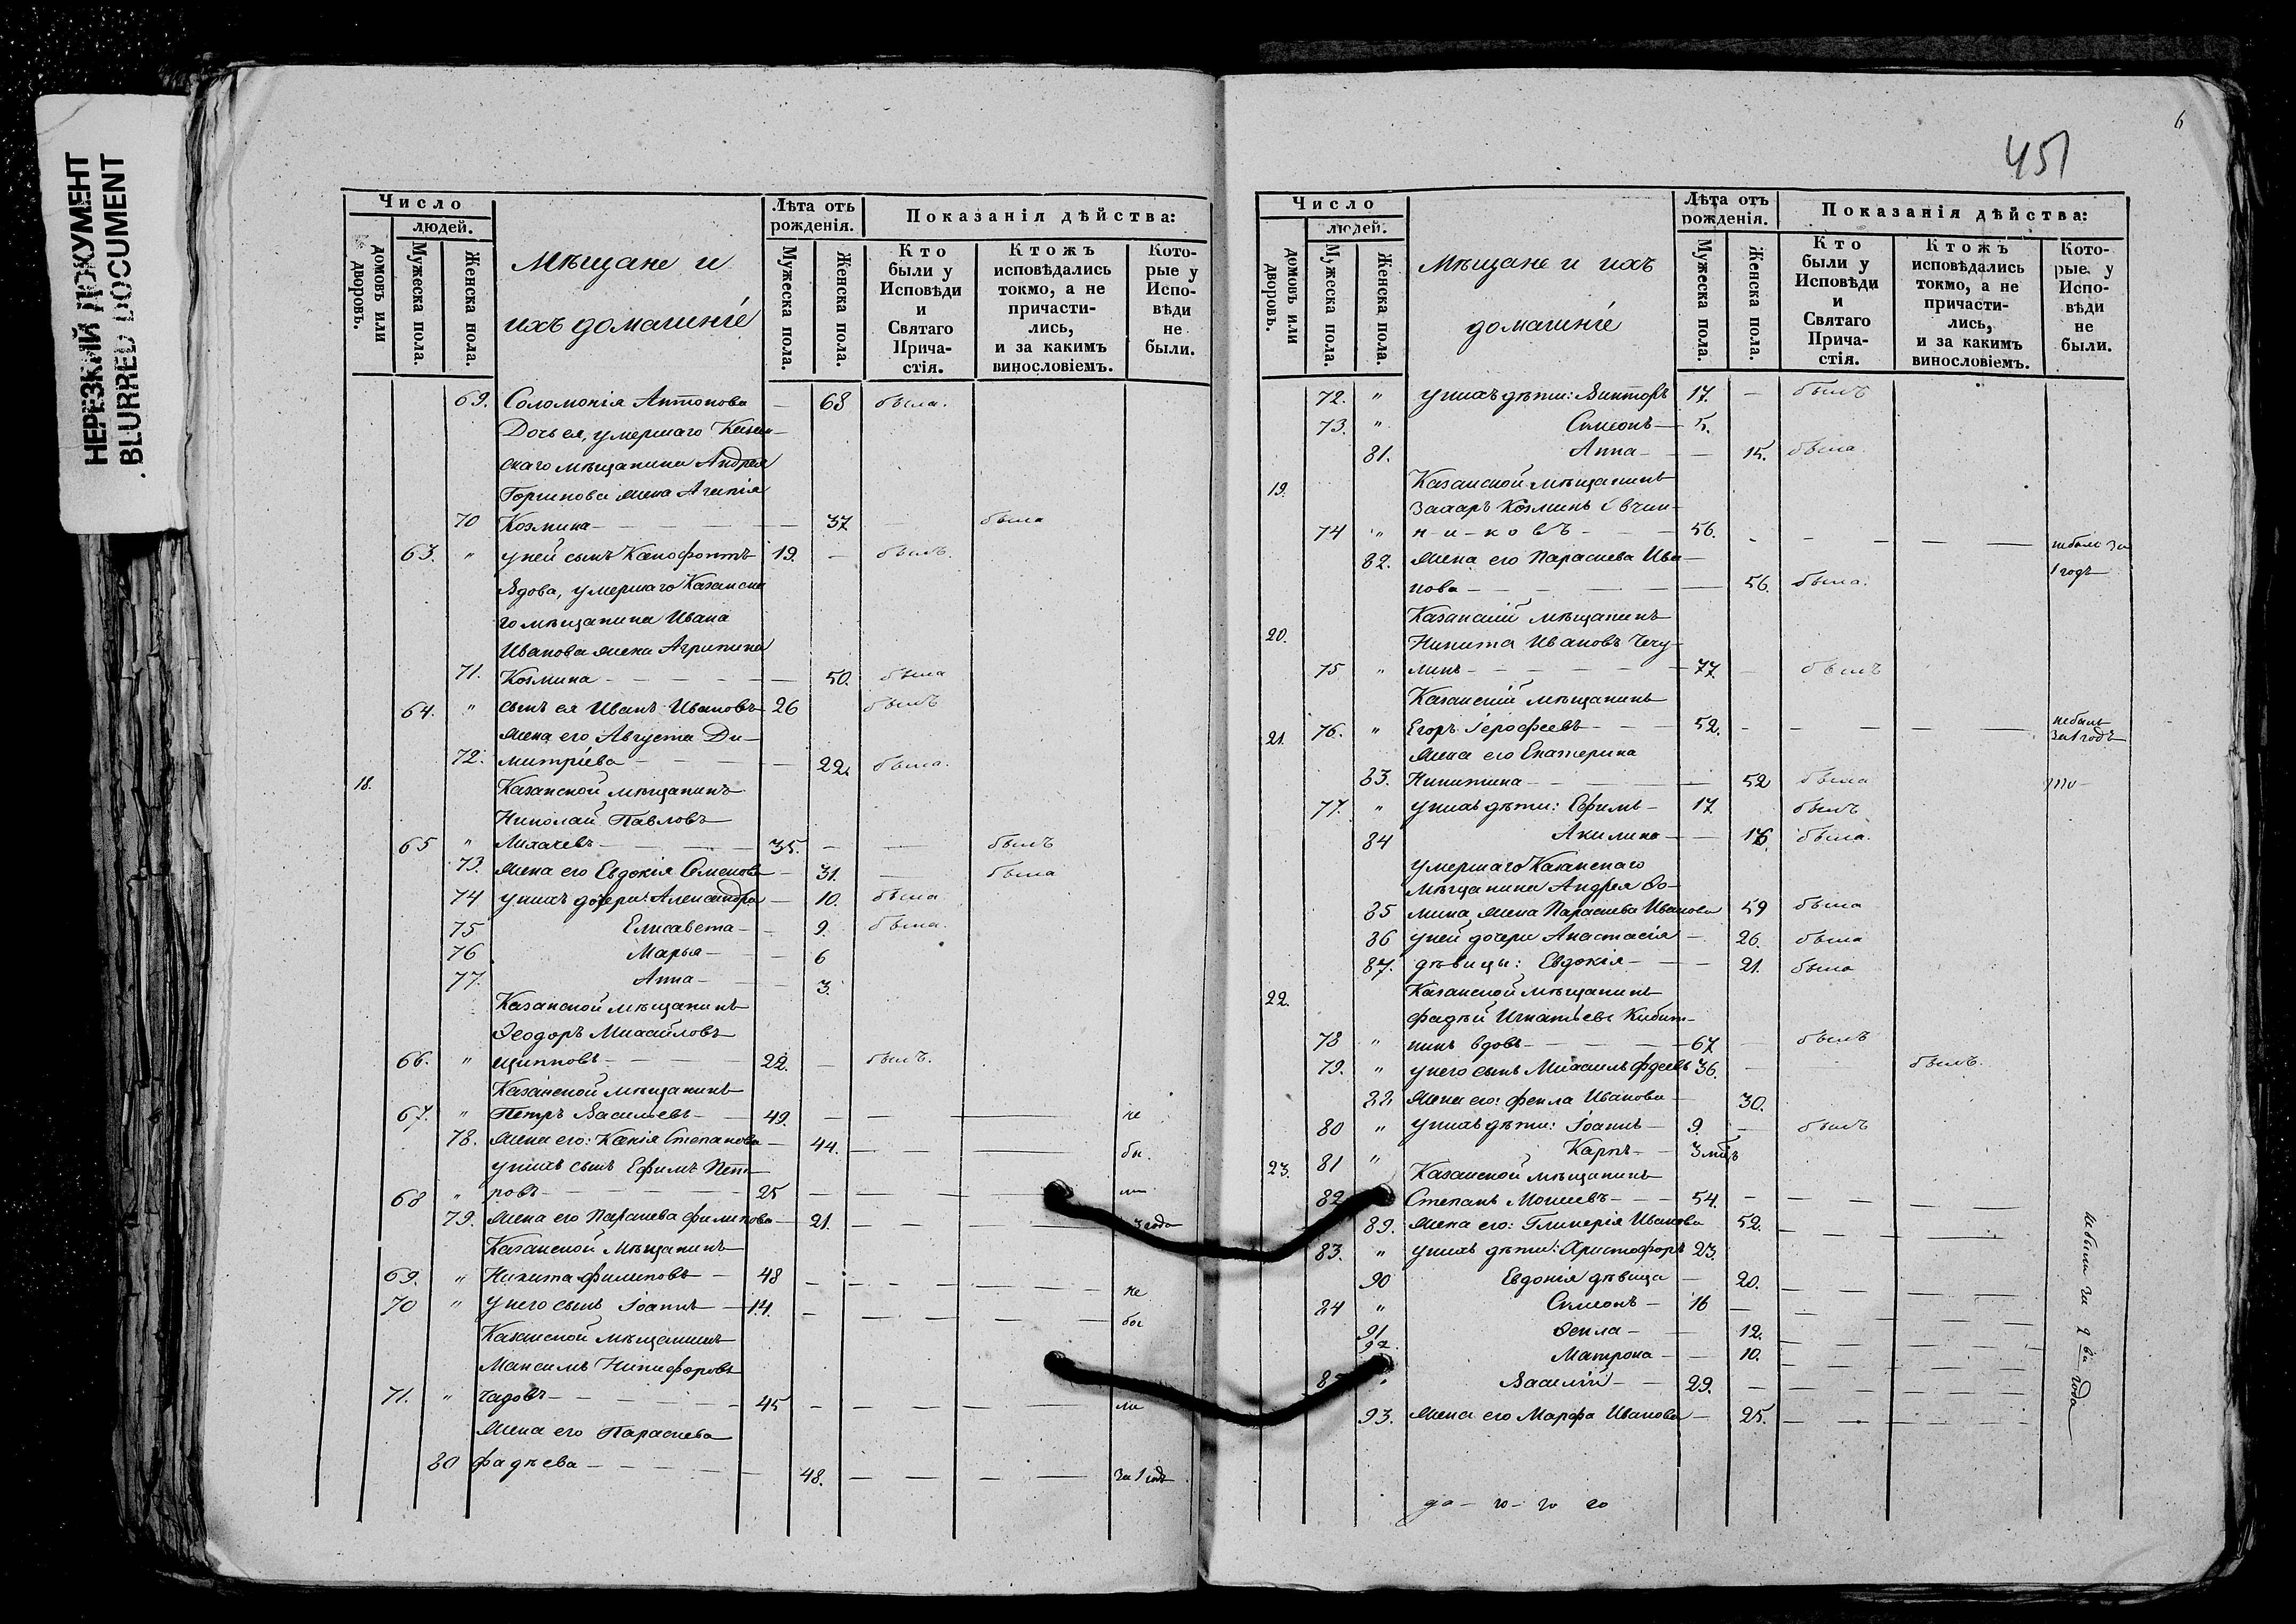 НЕРЕЗКИЙ ДОКУМЕНТ
BLURRED DOCUMENT
Число
людей.
домовъ или дворовъ.
Мужеска пола.
Женска пола.
Мѣщане и
ихъ домашніе
Лѣта отъ рожденія.
Мужеска пола.
Женска пола.
Показанія дѣйства:
Кто были у Исповѣди и Святаго Прича-стія.
Ктожъ исповѣдались токмо, а не причасти-лись, и за какимъ винословіемъ.
Кото-рые у Испо-вѣди не были.
69. Соломонія Антонова — 68 была.
Дочь ея, умершаго Казан-
скаго мѣщанина Андрея
жена Агапія
70 Козмина — 37 — была
63. " у ней сынъ Ксенофонтъ 19. — былъ.
Вдова, умершаго Казанска
го мѣщанина Ивана
Иванова жена Агрипина
71. Козмина — 50. была
64. " сынъ ея Иванъ Ивановъ 26 былъ
жена его Августа Ди-
72. митріева — 22. была.
18. Казанской мѣщанинъ
Николай Павловъ
65 " Лихачевъ — 35. — — былъ
73. жена его Евдокія Семенова — 31. — была
74 у нихъ дочери: Александра — 10. была
75 Елисавета — 9. была.
76 Марья — 6
77. Анна — 3.
Казанской мѣщанинъ
Ѳеодоръ Михайловъ
66. " — 22. — былъ.
Казанской мѣщанинъ
67. " Петръ Васильевъ — 49. — — — не
78. жена его: Ксенія Степанова — 44. — — — бы.
у нихъ сынъ Ефимъ Пет-
68 " ровъ — 25 — — — ли
79. жена его Параскева Филипова — 21. — — — 3 года
Казанской мѣщанинъ
69. " Никита Филиповъ — 48 — — — не
70 " У него сынъ Іоаннъ — 14. — — — бы
Казанской мѣщанинъ
Максимъ Никифоровъ
71. " Чадовъ — 45 — — — ли
жена его Параскева
80 Фадѣева — 48. — — — за 1 годъ
6
451
Число
людей.
домовъ или дворовъ.
Мужеска пола.
Женска пола.
Мѣщане и ихъ
домашніе
Лѣта отъ рожденія.
Мужеска пола.
Женска пола.
Показанія дѣйства:
Кто были у Исповѣди и Святаго Прича-стія.
Ктожъ исповѣдались токмо, а не причасти-лись, и за какимъ винословіемъ.
Кото-рые у Испо-вѣди не были.
72. " у нихъ дѣти: Викторъ 17. — былъ
73. " Симеонъ — 5.
81. Анна — 15. была.
19. Казанской мѣщанинъ
Захаръ Козминъ Овчин-
74 " н-и-ковъ — 56. — — — небылъ за
82. жена его Параскева Ива- 1 годъ
нова — 56. была.
20. Казанскій мѣщанинъ
Никита Ивановъ Чечу-
75 " линъ — 77 — былъ
Казанскій мѣщанинъ
21. 76. " Егоръ Іерофеевъ — 52. — — — небылъ за 1 годъ
жена его Екатерина
83. Никитина — 52 была
77. " у нихъ дѣти: Ефимъ — 17. былъ
84 Акилина — 16. была.
умершаго Казанскаго
мѣщанина Андрея Ѳо-
85 мина, жена Параскева Иванова 59 была
86 у ней дочери Анастасія — 26. была
87. дѣвицы: Евдокія — 21. была
22. Казанской мѣщанинъ
Фадѣй Игнатьевъ Кибит-
78 " кинъ вдовъ — 67 — былъ
79. " у него сынъ Михаилъ Фадеевъ 36. — — былъ.
88 жена его: Фекла Иванова — 30.
80 " у нихъ дѣти: Іоаннъ — 9. — былъ
81 " Карпъ — 3 мѣс
23. Казанской мѣщанинъ
82 Степанъ Моисеевъ — 54. — — —
89. жена его: Гликерія Иванова 52. — — —
83. " у нихъ дѣти: Христофоръ 23.
90 Евдокія дѣвица — 20. — — —
84 " Симеонъ — 16 — — —
91 Ѳекла — 12. — — —
92. Матрона — 10. — — —
85 " Василій — 29. — — —
93. жена его Марфа Иванова — 25. — — —
небыли 2 ва года